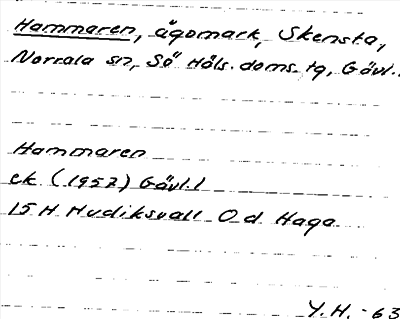 Hammaren, ägomark, Skensta,
Norrala sn, Sö Häls. doms. tg, Gävl.
Hammaren
ek (1957) Gävl.l
15 H Hudiksvall O d Haga
Y.H. - 63